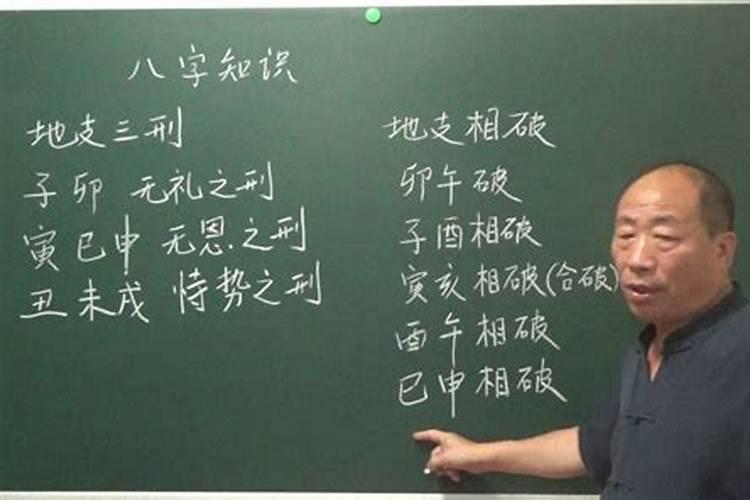 八字知识
地支三刑
子卯 无礼之刑
寅巳申 无恩之刑
丑未戌 恃势之刑
地支相破
卯午破
子酉相破
寅亥相破(合破)
酉午相破
巳申相破